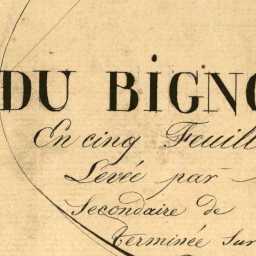 DU BIGNO
En cinq Feuill
Levée par
Secondaire de
Terminée sur